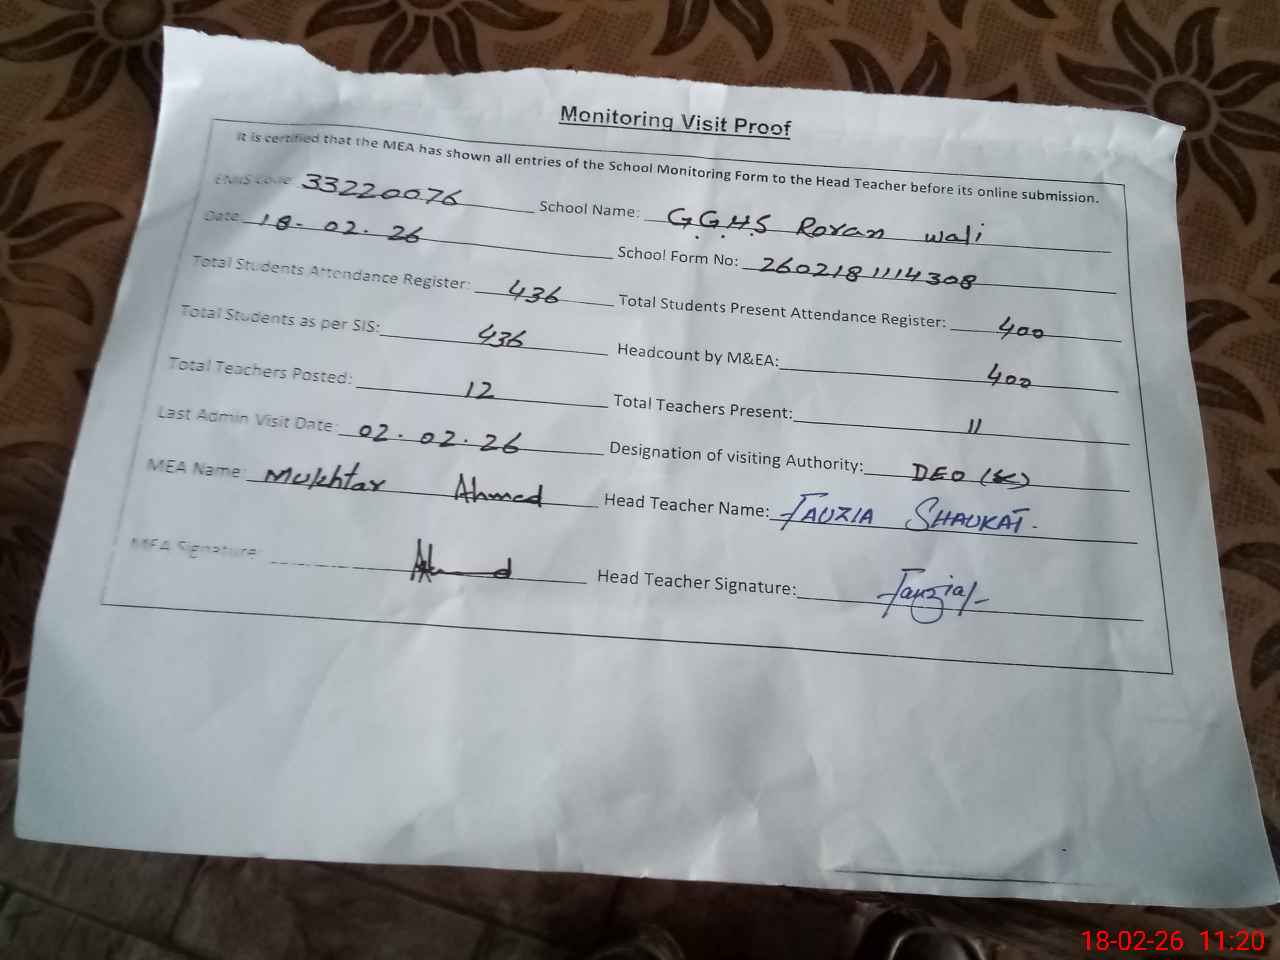 Monitoring Visit Proof
It is certified that the MEA has shown all entries of the School Monitoring Form to the Head Teacher before its online submission.
EMIS Code: 33220076 School Name: GGHS Roran Wali
Date: 18.02.26 School Form No: 2602181114308
Total Students Attendance Register: 436 Total Students Present Attendance Register: 400
Total Students as per SIS: 436 Headcount by M&EA: 400
Total Teachers Posted: 12 Total Teachers Present: 11
Last Admin Visit Date: 02.02.26 Designation of visiting Authority: DEO
MEA Name: Mukhtar Ahmed Head Teacher Name: FAUZIA SHAUKAT.
MEA Signature: Ahmed Head Teacher Signature: Fauzia
18-02-26 11:20